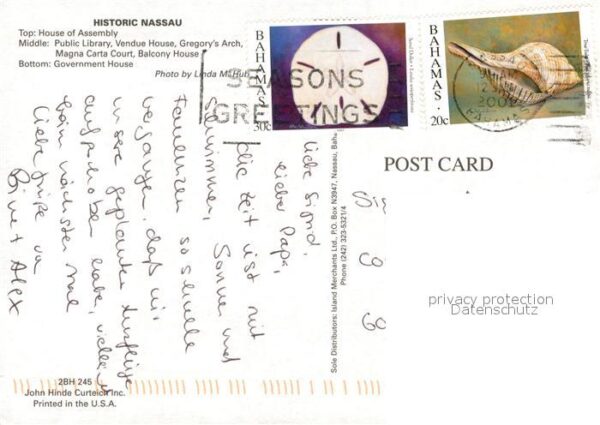 HISTORIC NASSAU
Top: House of Assembly
Middle: Public Library, Vendue House, Gregory's Arch,
Magna Carta Court, Balcony House
Bottom: Government House
Photo by Linda M. Huber
BAHAMAS
30c
BAHAMAS
20c
SEASONS
GREETINGS
POST CARD
liebe Sigrid,
lieber Papa,
die Zeit ist mit
Sonne und
Schwimmen,
so schnell
vergangen, daß wir
unsere geplanten Ausflüge
aufgschoben habe, vielleicht
beim nächsten mal
liebe Grüße von
+ Alex
Sole Distributors: Island Merchants Ltd., P.O. Box N3947, Nassau, Bah
Phone (242) 323-5321/4
privacy protection
Datenschutz
2BH 245
John Hinde Curteich Inc.
Printed in the U.S.A.